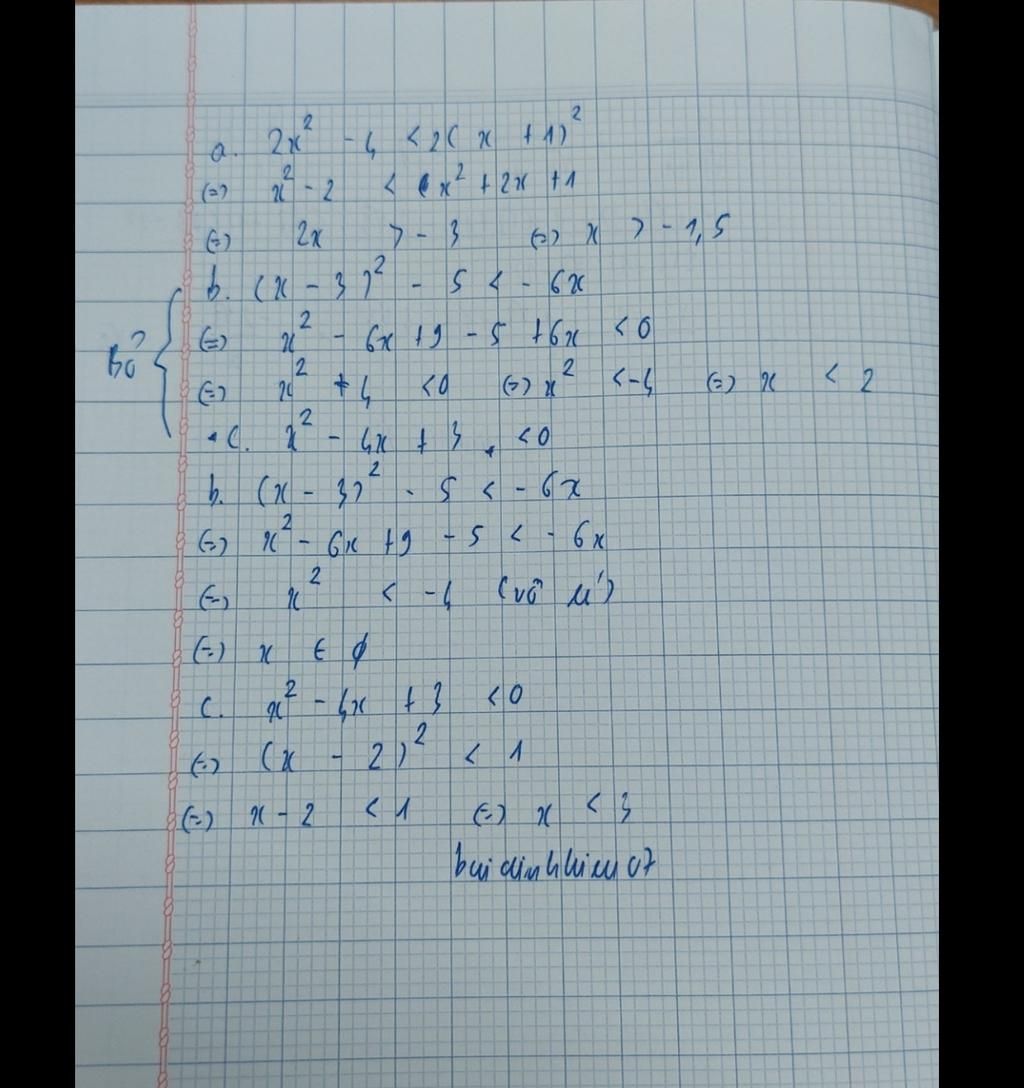 a. 2x² - 4 < 2(x + 1)²
(=) x² - 2 < x² + 2x + 1
(=) 2x > - 3 (=) x > - 1,5
b. (x - 3)² - 5 < - 6x
(=) x² - 6x + 9 - 5 + 6x < 0
Bỏ
(=) x² + 4 < 0 (=) x² < -4 (=) x < 2
c. x² - 4x + 3 < 0
b. (x - 3)² - 5 < - 6x
(=) x² - 6x + 9 - 5 < - 6x
(=) x² < -4 (vô lí)
(=) x ∈ ϕ
c. x² - 4x + 3 < 0
(=) (x - 2)² < 1
(=) x - 2 < 1 (=) x < 3